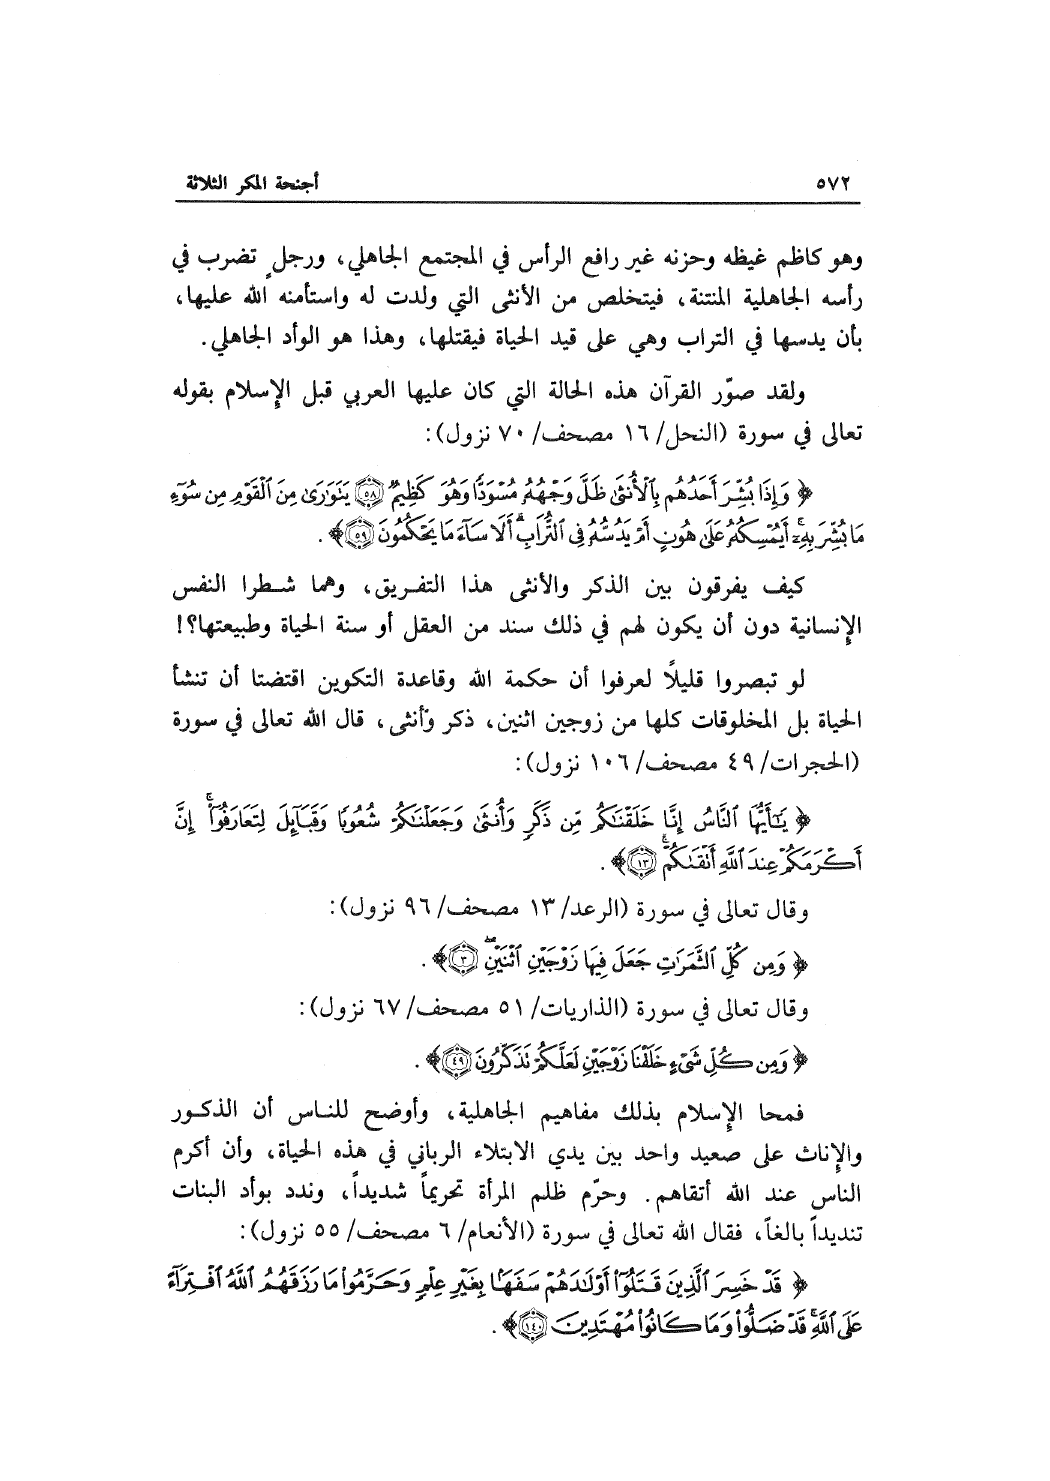 ٥٧٢
أجنحة المكر الثلاثة
وهو كاظم غيظه وحزنه غير رافع الرأس في المجتمع الجاهلي، ورجلٍ تضرب في
رأسه الجاهلية المنتنة، فيتخلص من الأنثى التي ولدت له واستأمنه الله عليها،
بأن يدسها في التراب وهي على قيد الحياة فيقتلها، وهذا هو الوأد الجاهلي.
ولقد صوّر القرآن هذه الحالة التي كان عليها العربي قبل الإسلام بقوله
تعالى في سورة (النحل/ ١٦ مصحف/ ٧٠ نزول):
﴿ وَإِذَا بُشِّرَ أَحَدُهُم بِٱلْأُنثَىٰ ظَلَّ وَجْهُهُۥ مُسْوَدًّا وَهُوَ كَظِيمٌ ۝٥٨ يَتَوَٰرَىٰ مِنَ ٱلْقَوْمِ مِن سُوٓءِ
مَا بُشِّرَ بِهِۦٓ ۚ أَيُمْسِكُهُۥ عَلَىٰ هُونٍ أَمْ يَدُسُّهُۥ فِى ٱلتُّرَابِ ۗ أَلَا سَآءَ مَا يَحْكُمُونَ ۝٥٩ ﴾.
كيف يفرقون بين الذكر والأنثى هذا التفريق، وهما شطرا النفس
الإنسانية دون أن يكون لهم في ذلك سند من العقل أو سنة الحياة وطبيعتها؟!
لو تبصروا قليلاً لعرفوا أن حكمة الله وقاعدة التكوين اقتضتا أن تنشأ
الحياة بل المخلوقات كلها من زوجين اثنين، ذكر وأنثى، قال الله تعالى في سورة
(الحجرات/ ٤٩ مصحف/ ١٠٦ نزول):
﴿ يَٰٓأَيُّهَا ٱلنَّاسُ إِنَّا خَلَقْنَٰكُم مِّن ذَكَرٍ وَأُنثَىٰ وَجَعَلْنَٰكُمْ شُعُوبًا وَقَبَآئِلَ لِتَعَارَفُوٓا۟ ۚ إِنَّ
أَكْرَمَكُمْ عِندَ ٱللَّهِ أَتْقَىٰكُمْ ۚ ۝١٣ ﴾.
وقال تعالى في سورة (الرعد/ ١٣ مصحف/ ٩٦ نزول):
﴿ وَمِن كُلِّ ٱلثَّمَرَٰتِ جَعَلَ فِيهَا زَوْجَيْنِ ٱثْنَيْنِ ۖ ۝٣ ﴾.
وقال تعالى في سورة (الذاريات/ ٥١ مصحف/ ٦٧ نزول):
﴿ وَمِن كُلِّ شَىْءٍ خَلَقْنَا زَوْجَيْنِ لَعَلَّكُمْ تَذَكَّرُونَ ۝٤٩ ﴾.
فمحا الإسلام بذلك مفاهيم الجاهلية، وأوضح للناس أن الذكور
والإناث على صعيد واحد بين يدي الابتلاء الرباني في هذه الحياة، وأن أكرم
الناس عند الله أتقاهم. وحرّم ظلم المرأة تحريماً شديداً، وندد بوأد البنات
تنديداً بالغاً، فقال الله تعالى في سورة (الأنعام/ ٦ مصحف/ ٥٥ نزول):
﴿ قَدْ خَسِرَ ٱلَّذِينَ قَتَلُوٓا۟ أَوْلَٰدَهُمْ سَفَهًۢا بِغَيْرِ عِلْمٍ وَحَرَّمُوا۟ مَا رَزَقَهُمُ ٱللَّهُ ٱفْتِرَآءً
عَلَى ٱللَّهِ ۚ قَدْ ضَلُّوا۟ وَمَا كَانُوا۟ مُهْتَدِينَ ۝١٤٠ ﴾.